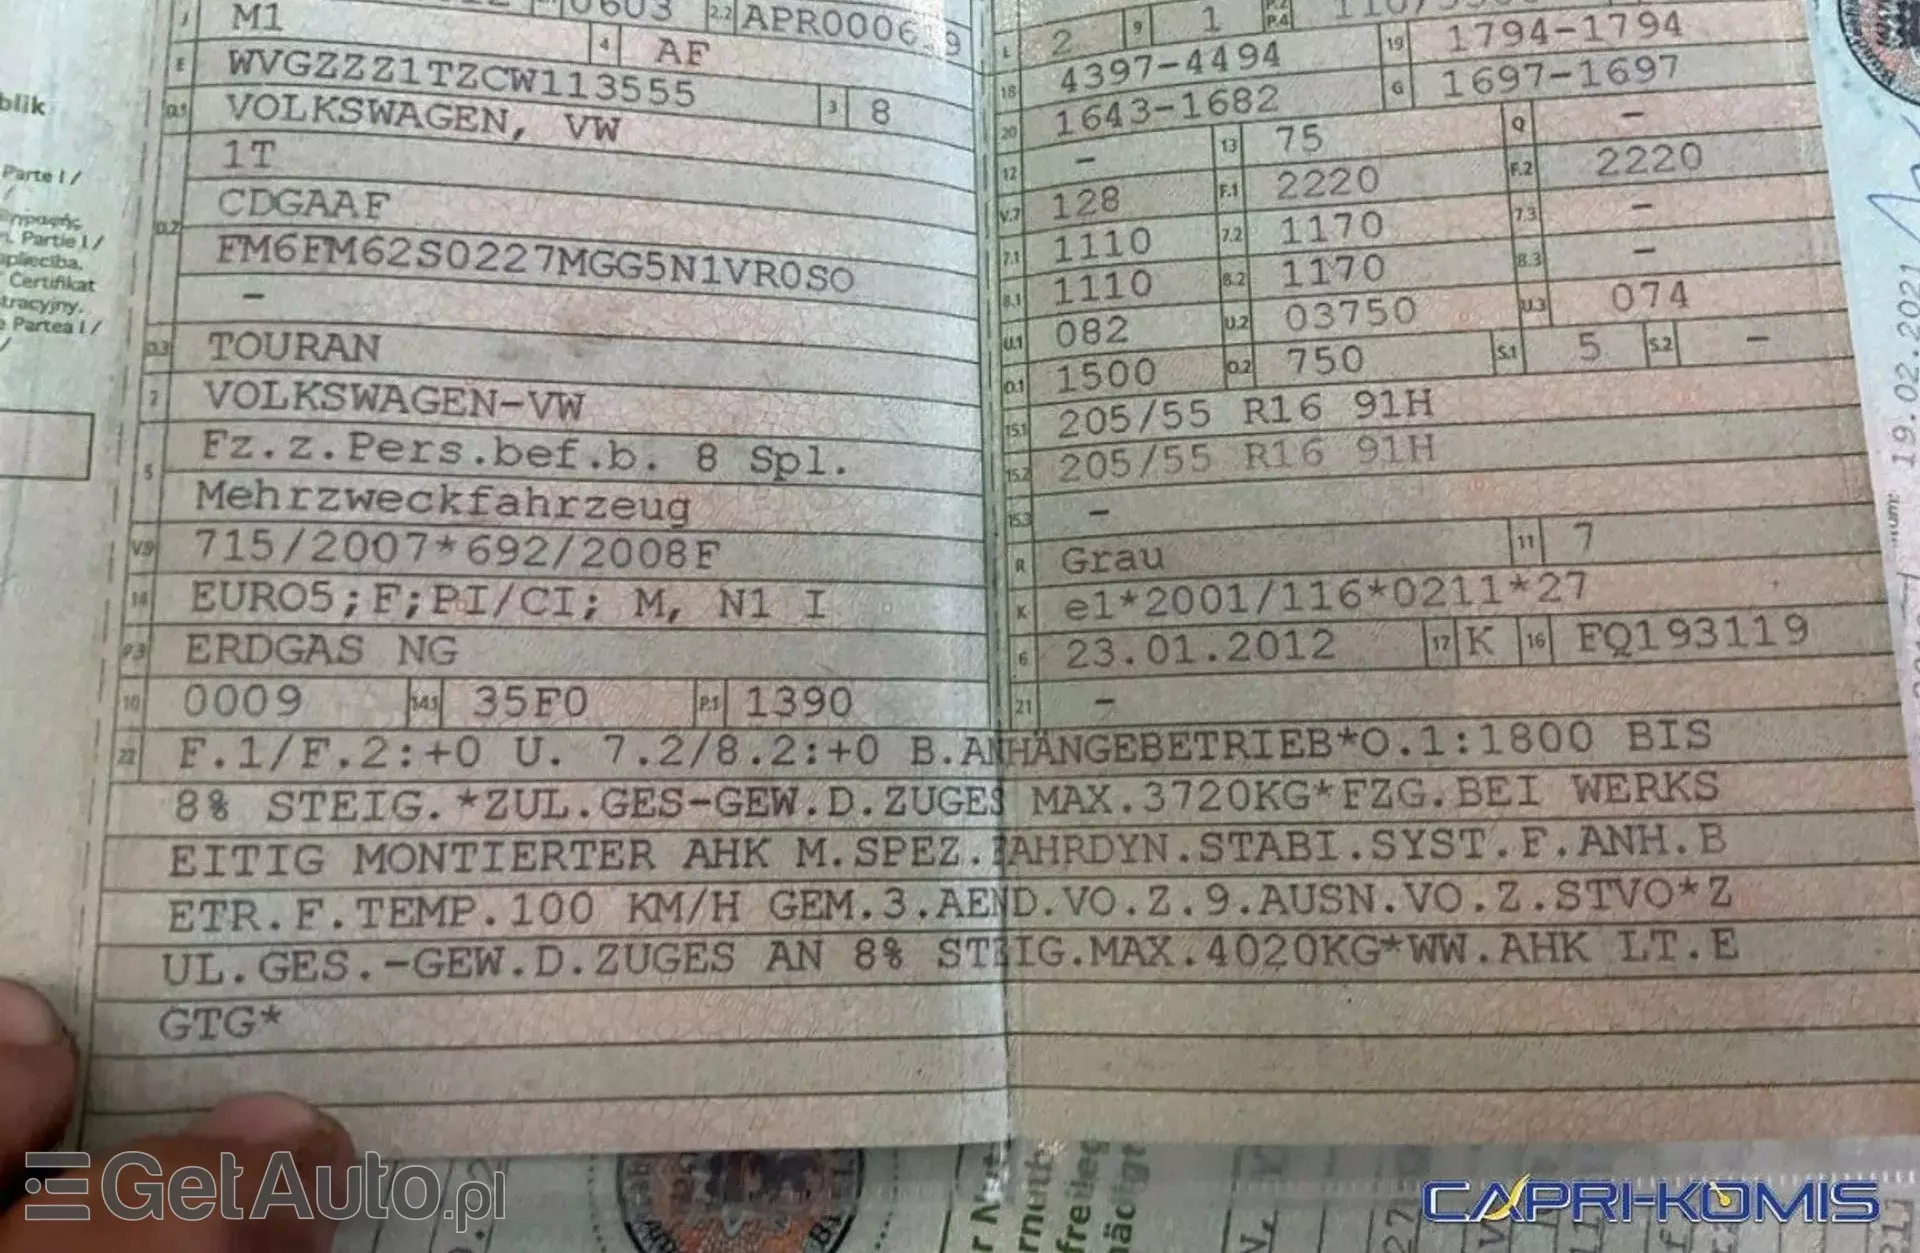 J M1 4 AF
E WVGZZZ1TZCW113555 3 8
D.1 VOLKSWAGEN, VW
1T
D.2 CDGAAF
FM6FM62S0227MGG5N1VR0SO
–
D.3 TOURAN
2 VOLKSWAGEN-VW
5 Fz.z.Pers.bef.b. 8 Spl.
Mehrzweckfahrzeug
V.9 715/2007*692/2008F
14 EURO5;F;PI/CI; M, N1 I
P.3 ERDGAS NG
10 0009 14.1 35F0 P.1 1390
L 2 9 1 P.2 P.4
18 4397-4494 19 1794-1794
20 1643-1682 G 1697-1697
12 – 13 75 Q –
V.7 128 F.1 2220 F.2 2220
7.1 1110 7.2 1170 7.3 –
8.1 1110 8.2 1170 8.3 –
U.1 082 U.2 03750 U.3 074
O.1 1500 O.2 750 S.1 5 S.2 –
15.1 205/55 R16 91H
15.2 205/55 R16 91H
15.3 –
R Grau 11 7
K e1*2001/116*0211*27
6 23.01.2012 17 K 16 FQ193119
21 –
22 F.1/F.2:+0 U. 7.2/8.2:+0 B.ANHÄNGEBETRIEB*O.1:1800 BIS
8% STEIG.*ZUL.GES-GEW.D.ZUGES MAX.3720KG*FZG.BEI WERKS
EITIG MONTIERTER AHK M.SPEZ.FAHRDYN.STABI.SYST.F.ANH.B
ETR.F.TEMP.100 KM/H GEM.3.AEND.VO.Z.9.AUSN.VO.Z.STVO*Z
UL.GES.-GEW.D.ZUGES AN 8% STEIG.MAX.4020KG*WW.AHK LT.E
GTG*
blik
Parte I /
. Partie I /
Certifikat
Partea I /
19.02.2021
freileg
GetAuto.pl
CAPRI-KOMIS